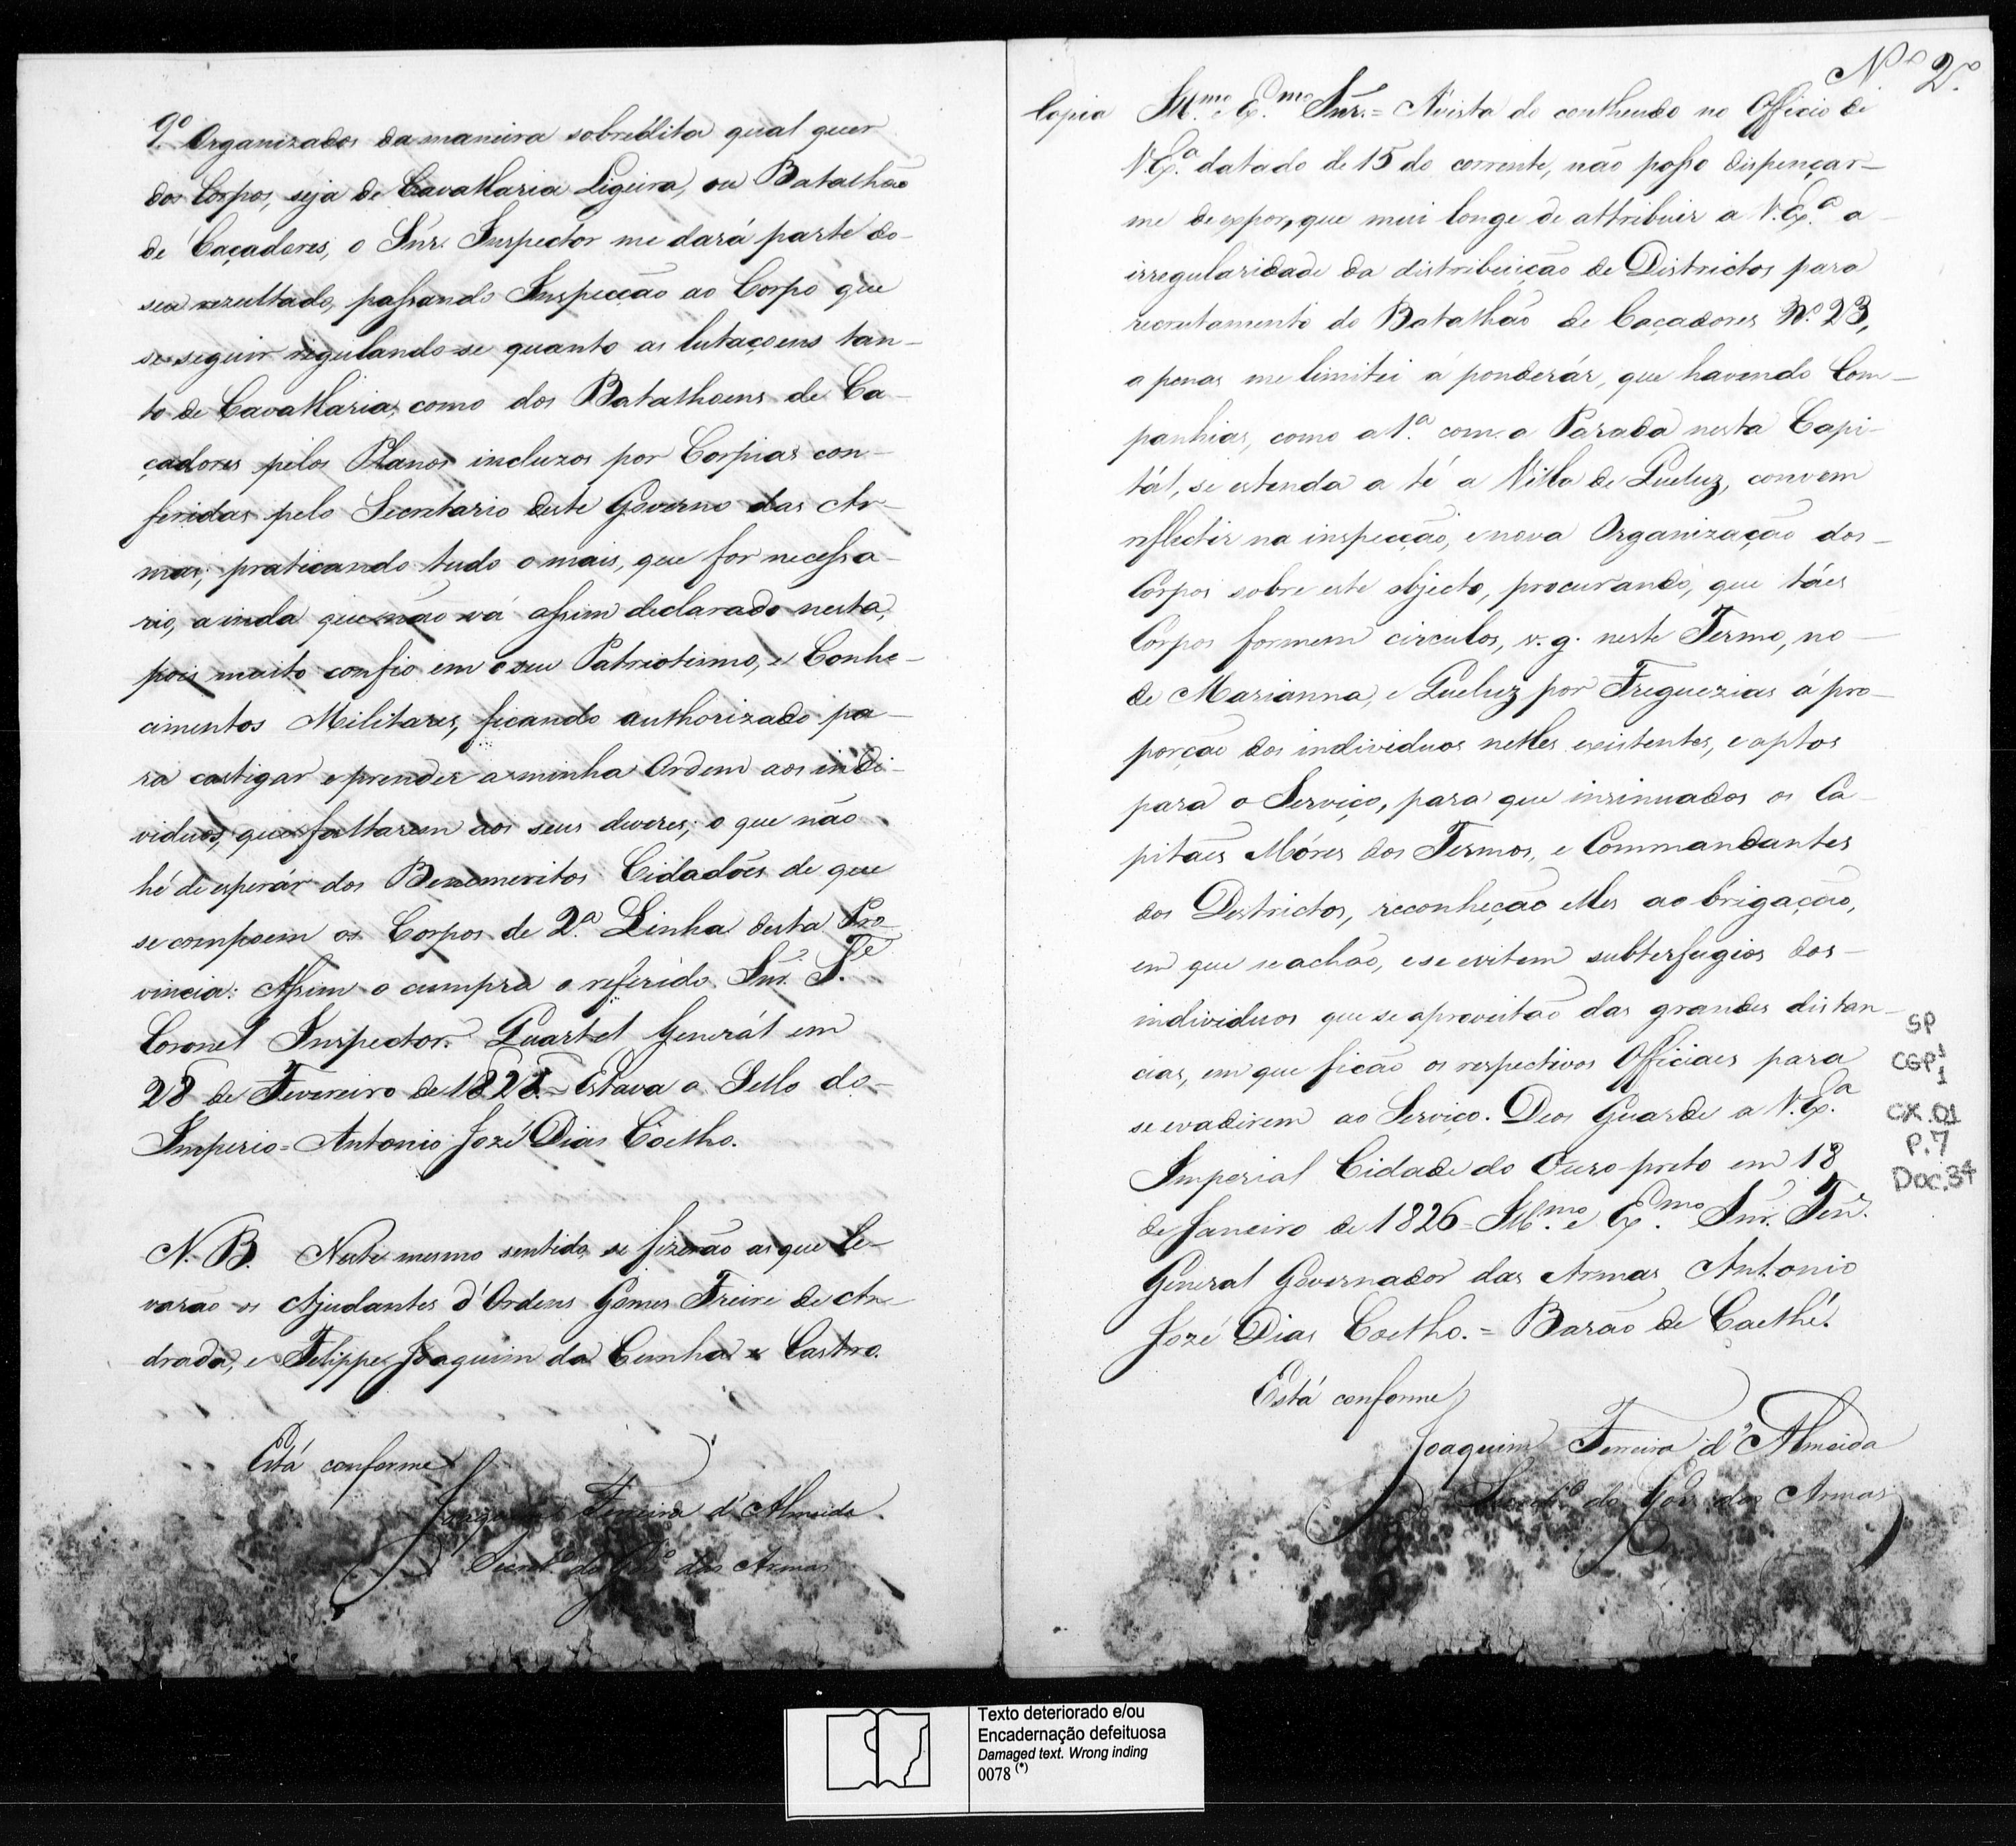 9.º Organizados da maneira sobredita qual quer
dos Corpos, seja de Cavallaria Ligeira, ou Batalhão
de Caçadores, o Snr. Inspector me dará parte do
seu rezultado, passando Inspecção ao Corpo que
se seguir regulando-se quanto as lutaçoens tan-
to de Cavallaria, como dos Batalhoens de Ca-
çadores pelos Planos incluzos por Corpias con-
feridas pelo Secretario deste Governo das Ar-
mas; praticando tudo o mais, que for necessa-
rio, a inda que não vá assim declarado nesta,
pois muito confio em o seu Patriotismo, e Conhe-
cimentos Militares, ficando authorizado pa-
ra castigar e prender a minha Ordem aos indi-
viduos, que faltarem aos seus deveres; o que não
hé de esperár dos Benemeritos Cidadões de que
se compoem os Corpos de 2.ª Linha desta Pro-
vincia: Assim o cumpra o referido Snr. T.e
Coronel Inspector. Quartel Generál em
28 de Fevereiro de 1828 = Estava o Sello do
Imperio = Antonio Jozé Dias Coelho.
N. B. Neste mesmo sentido se fizerão as que le-
varão os Ajudantes d'Ordens Gomes Freire de An-
drada, e Felippe Joaquim da Cunha e Castro.
Está conforme
Joaquim Ferreira d'Almeida
Secret.º do Gov.º das Armas
N.º 2.º
Copia Ill.mo Ex.mo Snr. = Á vista do contheudo no Officio de
V.Ex.ª datado de 15 do corrente, não posso dispençar-
me de expor, que mui longe de attribuir a V.Ex.ª a
irregularidade da distribuição de Districtos para
recrutamento do Batalhão de Caçadores N.º 23,
a penas me limitei á ponderár, que havendo Com-
panhias, como a 1.ª com a Parada nesta Capi-
tál, se estenda a té a Villa de Queluz, convem
reflectir na inspecção, e nova Organização dos
Corpos sobre este objecto, procurando, que táes
Corpos formem circulos, v. g. neste Termo, no
de Marianna, e Queluz por Freguezias á pro-
porção dos individuos nelles existentes, e aptos
para o Serviço, para que insinuados os Ca-
pitães Móres dos Termos, e Commandantes
dos Destrictos, reconheção elles ao brigação,
em que se achão, e se evitem subterfugios dos
individuos que se aproveitão das grandes distan-
cias, em que ficão os respectivos Officiaes para
se evadirem ao Serviço. Deos Guarde a V.Ex.ª
Imperial Cidade do Ouro-preto em 18
de Janeiro de 1826 = Ill.mo e Ex.mo Snr. Ten.e
General Governador das Armas Antonio
Jozé Dias Coelho. = Barão de Caethé.
Está conforme
Joaquim Ferreira d'Almeida
Secret.º do Gov.º das Armas
SP
CGP1
1
CX.01
P.7
Doc.34
Texto deteriorado e/ou
Encadernação defeituosa
Damaged text. Wrong inding
0078 (*)